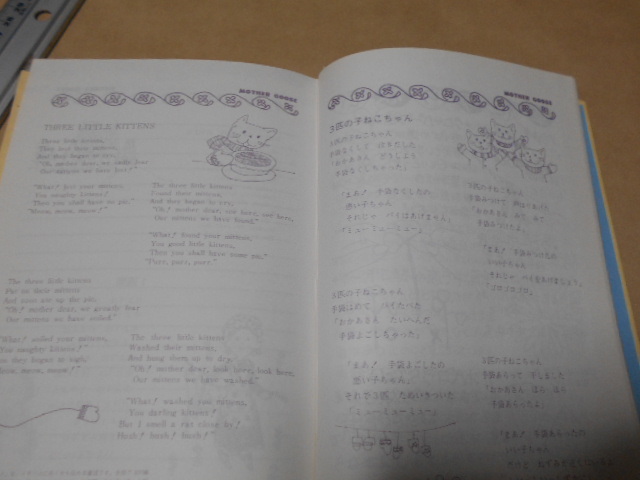 MOTHER GOOSE
THREE LITTLE KITTENS
Three little kittens,
They lost their mittens,
And they began to cry,
"Oh, mother dear, we sadly fear
Our mittens we have lost!"
"What! lost your mittens,
You naughty kittens!
Then you shall have no pie."
"Meeow, meeow, meeow!"
The three little kittens
Found their mittens,
And they began to cry,
"Oh! mother dear, see here, see here,
Our mittens we have found."
"What! found your mittens,
You good little kittens,
Then you shall have some pie."
"Purr, purr, purr."
The three little kittens
Put on their mittens
And soon ate up the pie,
"Oh! mother dear, we greatly fear
Our mittens we have soiled."
"What! soiled your mittens,
You naughty kittens!"
they began to sigh,
meeow, meeow!"
The three little kittens
Washed their mittens,
And hung them up to dry,
"Oh! mother dear, look here, look here,
Our mittens we have washed."
"What! washed your mittens,
You darling kittens!
But I smell a rat close by!
Hush! hush! hush!"
MOTHER GOOSE
3匹の子ねこちゃん
3匹の子ねこちゃん
手袋なくして 泣きだした
「おかあさん どうしよう
手袋なくしちゃった」
「まあ! 手袋なくしたの
悪い子ちゃん
それじゃ パイはあげません」
「ミューミューミュー」
3匹の子ねこちゃん
手袋みつけて
「おかあさん みて みて
手袋みつけたよ」
「まあ! 手袋みつけたの
いい子ちゃん
それじゃ パイをあげましょう」
「ゴロゴロゴロ」
3匹の子ねこちゃん
手袋はめて パイたべた
「おかあさん たいへんだ
手袋よごしちゃった」
「まあ! 手袋よごしたの
悪い子ちゃん」
それで3匹 ためいきついた
「ミューミューミュー」
3匹の子ねこちゃん
手袋あらって 干しました
「おかあさん ほら ほら
手袋あらったよ」
「まあ! 手袋あらったの
いい子ちゃん